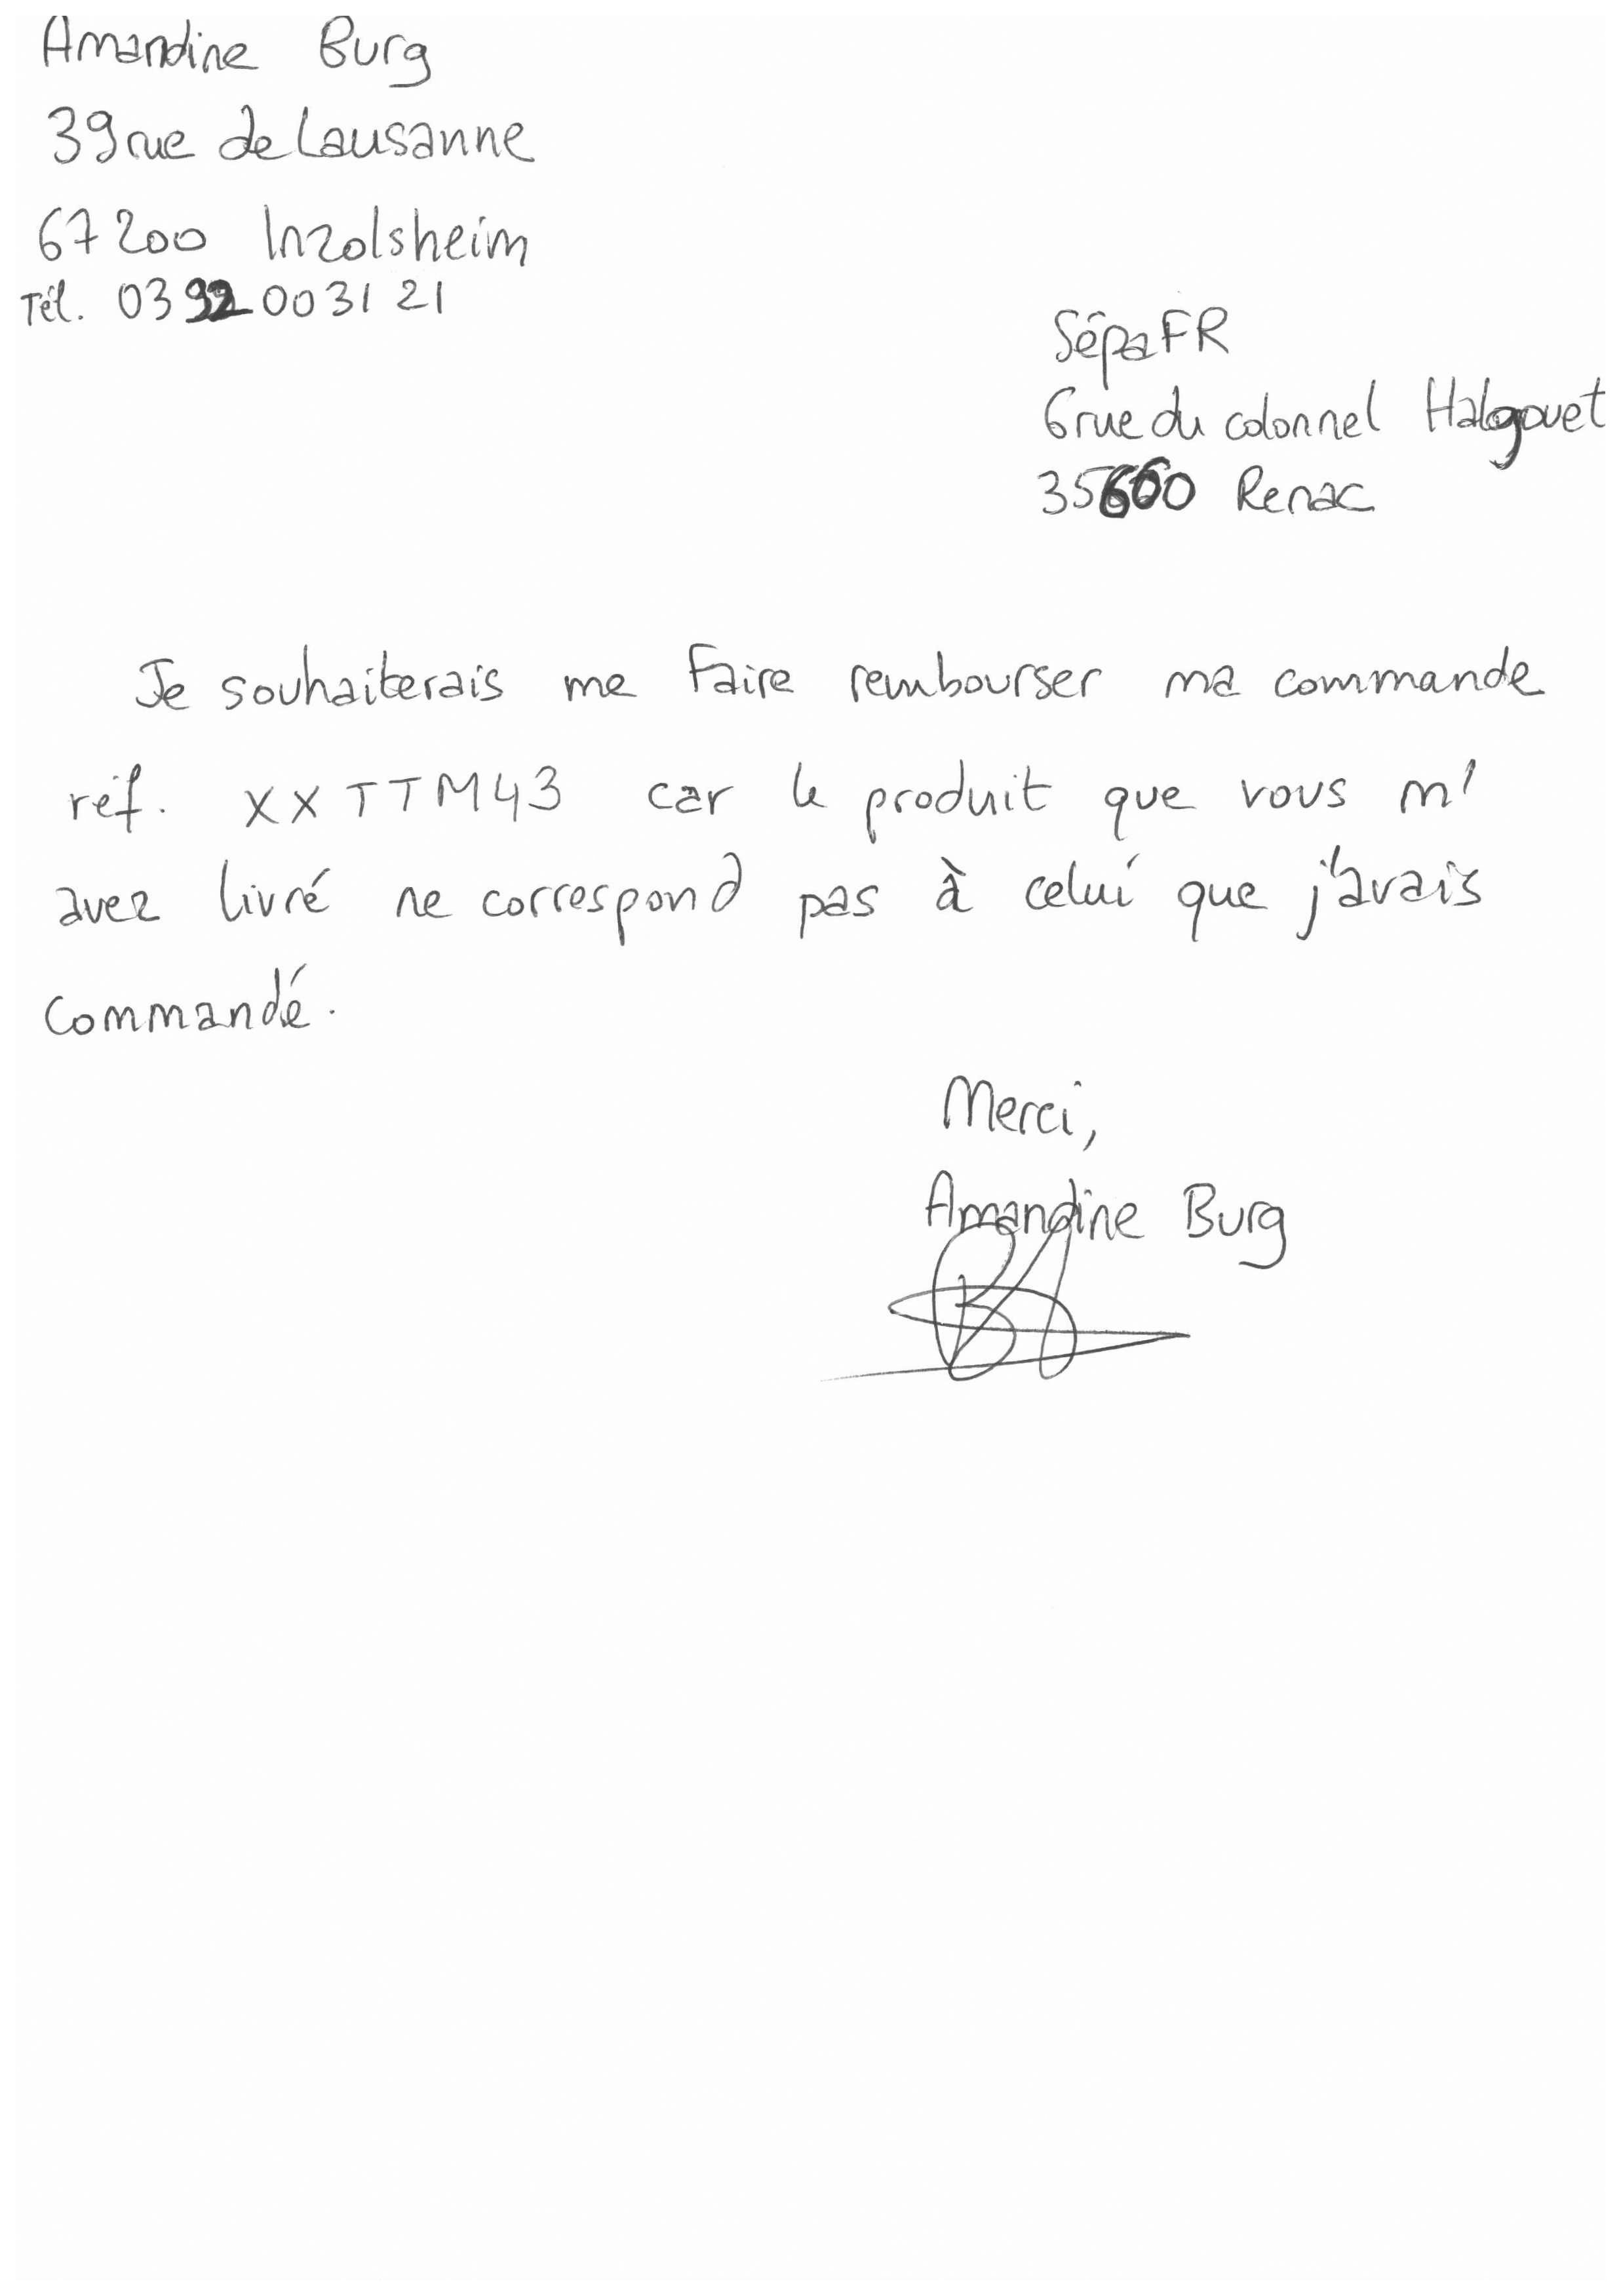 Amandine Burg
39 rue de Lausanne
67200 Inzolsheim
Tél. 03 92 00 31 21
SépaFR
6 rue du colonnel Halgouet
35660 Renac
Je souhaiterais me faire rembourser ma commande
réf. XXTTM43 car le produit que vous m'
avez livré ne correspond pas à celui que j'avais
commandé.
Merci,
Amandine Burg